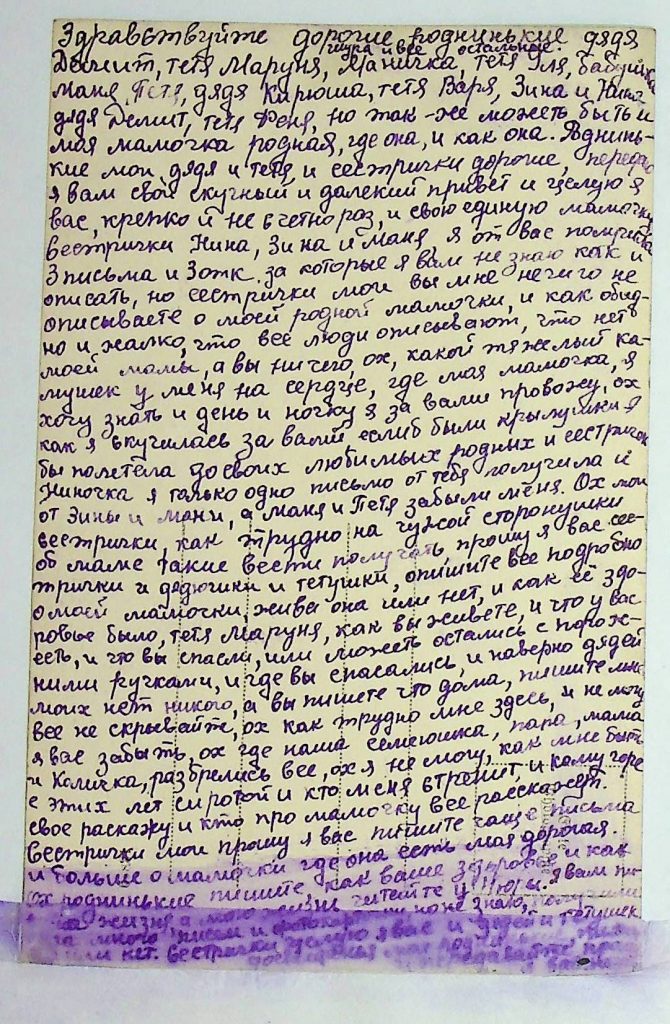 Здравствуйте дорогие роднинькие дядя
шура и все остальные.
Демит, тетя Маруня, Маничка, тетя Эля, бабушка
Маня, Петя, дядя Кирюша, тетя Варя, Зина и Нина
дядя Демит, тетя Феня, но так-же можеть быть и
мая мамочка родная, где она, и как она. Роднинь-
кие мои, дядя и тетя, и сестрички дорогие, передаю
я вам свой скучный и далекий привет и целую я
вас, крепко и не счетно раз, и свою единую мамочку
сестрички Нина, Зина и Маня, я от вас получила
3 письма и 3 отк. за которые я вам не знаю как и
описать, но сестрички мои вы мне нечиго не
описываете о моей родной мамочки, и как обид-
но и жалко, что все люди описывают, что неть
моей мамы, а вы ничего, ох, какой тяжелый ка-
мушек у меня на сердце, где мая мамочка, я
хочу знать и день и ночку я за вами провожу, ох
как я скучилась за вами еслиб были крылушки я
бы полетела до своих любимых родных и сестричок
Ниночка я только одно письмо от тебя получила и
от Зины и Мани, а Маня и Петя забыли меня. Ох мои
сестрички, как трудно на чужой сторонушки
об маме такие вести получать, прошу я вас сес-
трички и дядюшки и тетушки, опишите все подробно
о моей мамочки, жива она или нет, и как её здо-
ровье было, тетя Маруня, как вы живете, и что у вас
есть, и что вы спасли, или можеть остались с порож-
ними ручками, и где вы спасались, и наверно дядей
моих нет никого, а вы пишете что дома, пишите мне
все не скрывайте, ох как трудно мне здесь, и не могу
я вас забыть, ох где наша семеюшка, папа, мама
и Количка, разбрелись все, ох я не могу, как мне быть
с этих лет сиротой и кто меня встрепит, и кому горе
свое раскажу и кто про мамочку все расскажет.
Сестрички мои прошу я вас пишите чаще письма
и больше о мамочки где она есть мая дорогая.
ох роднинькие пишите, как ваше здоровье и как
жизня а мою читайте у Нюры. я вам
но не знаю, получили
много писем и я вас и дядей и тетушек
или нет. сестрички